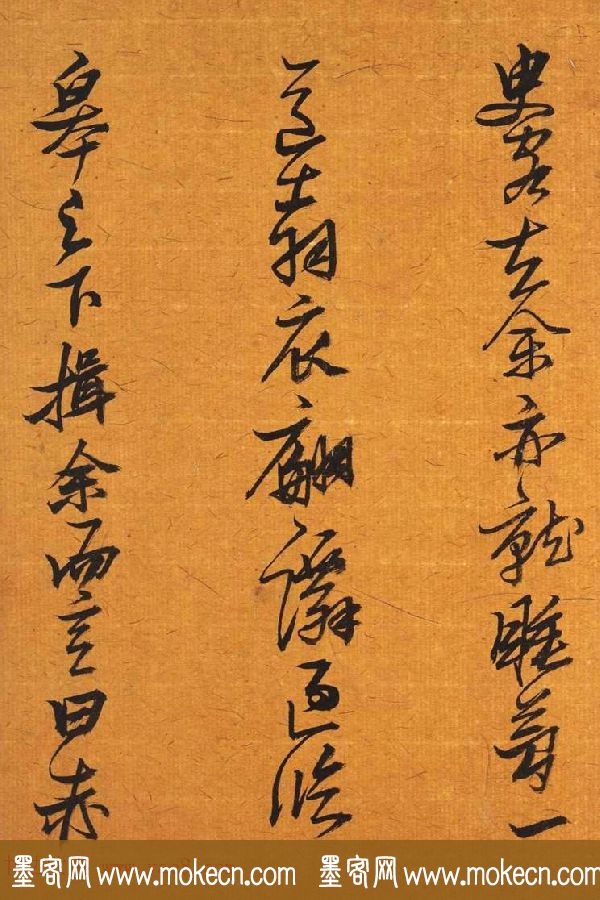 臾客去余亦就睡夢一
道士羽衣翩躚過臨
皋之下揖余而言曰赤
墨客网 www.mokecn.com 墨客网 www.mokecn.com